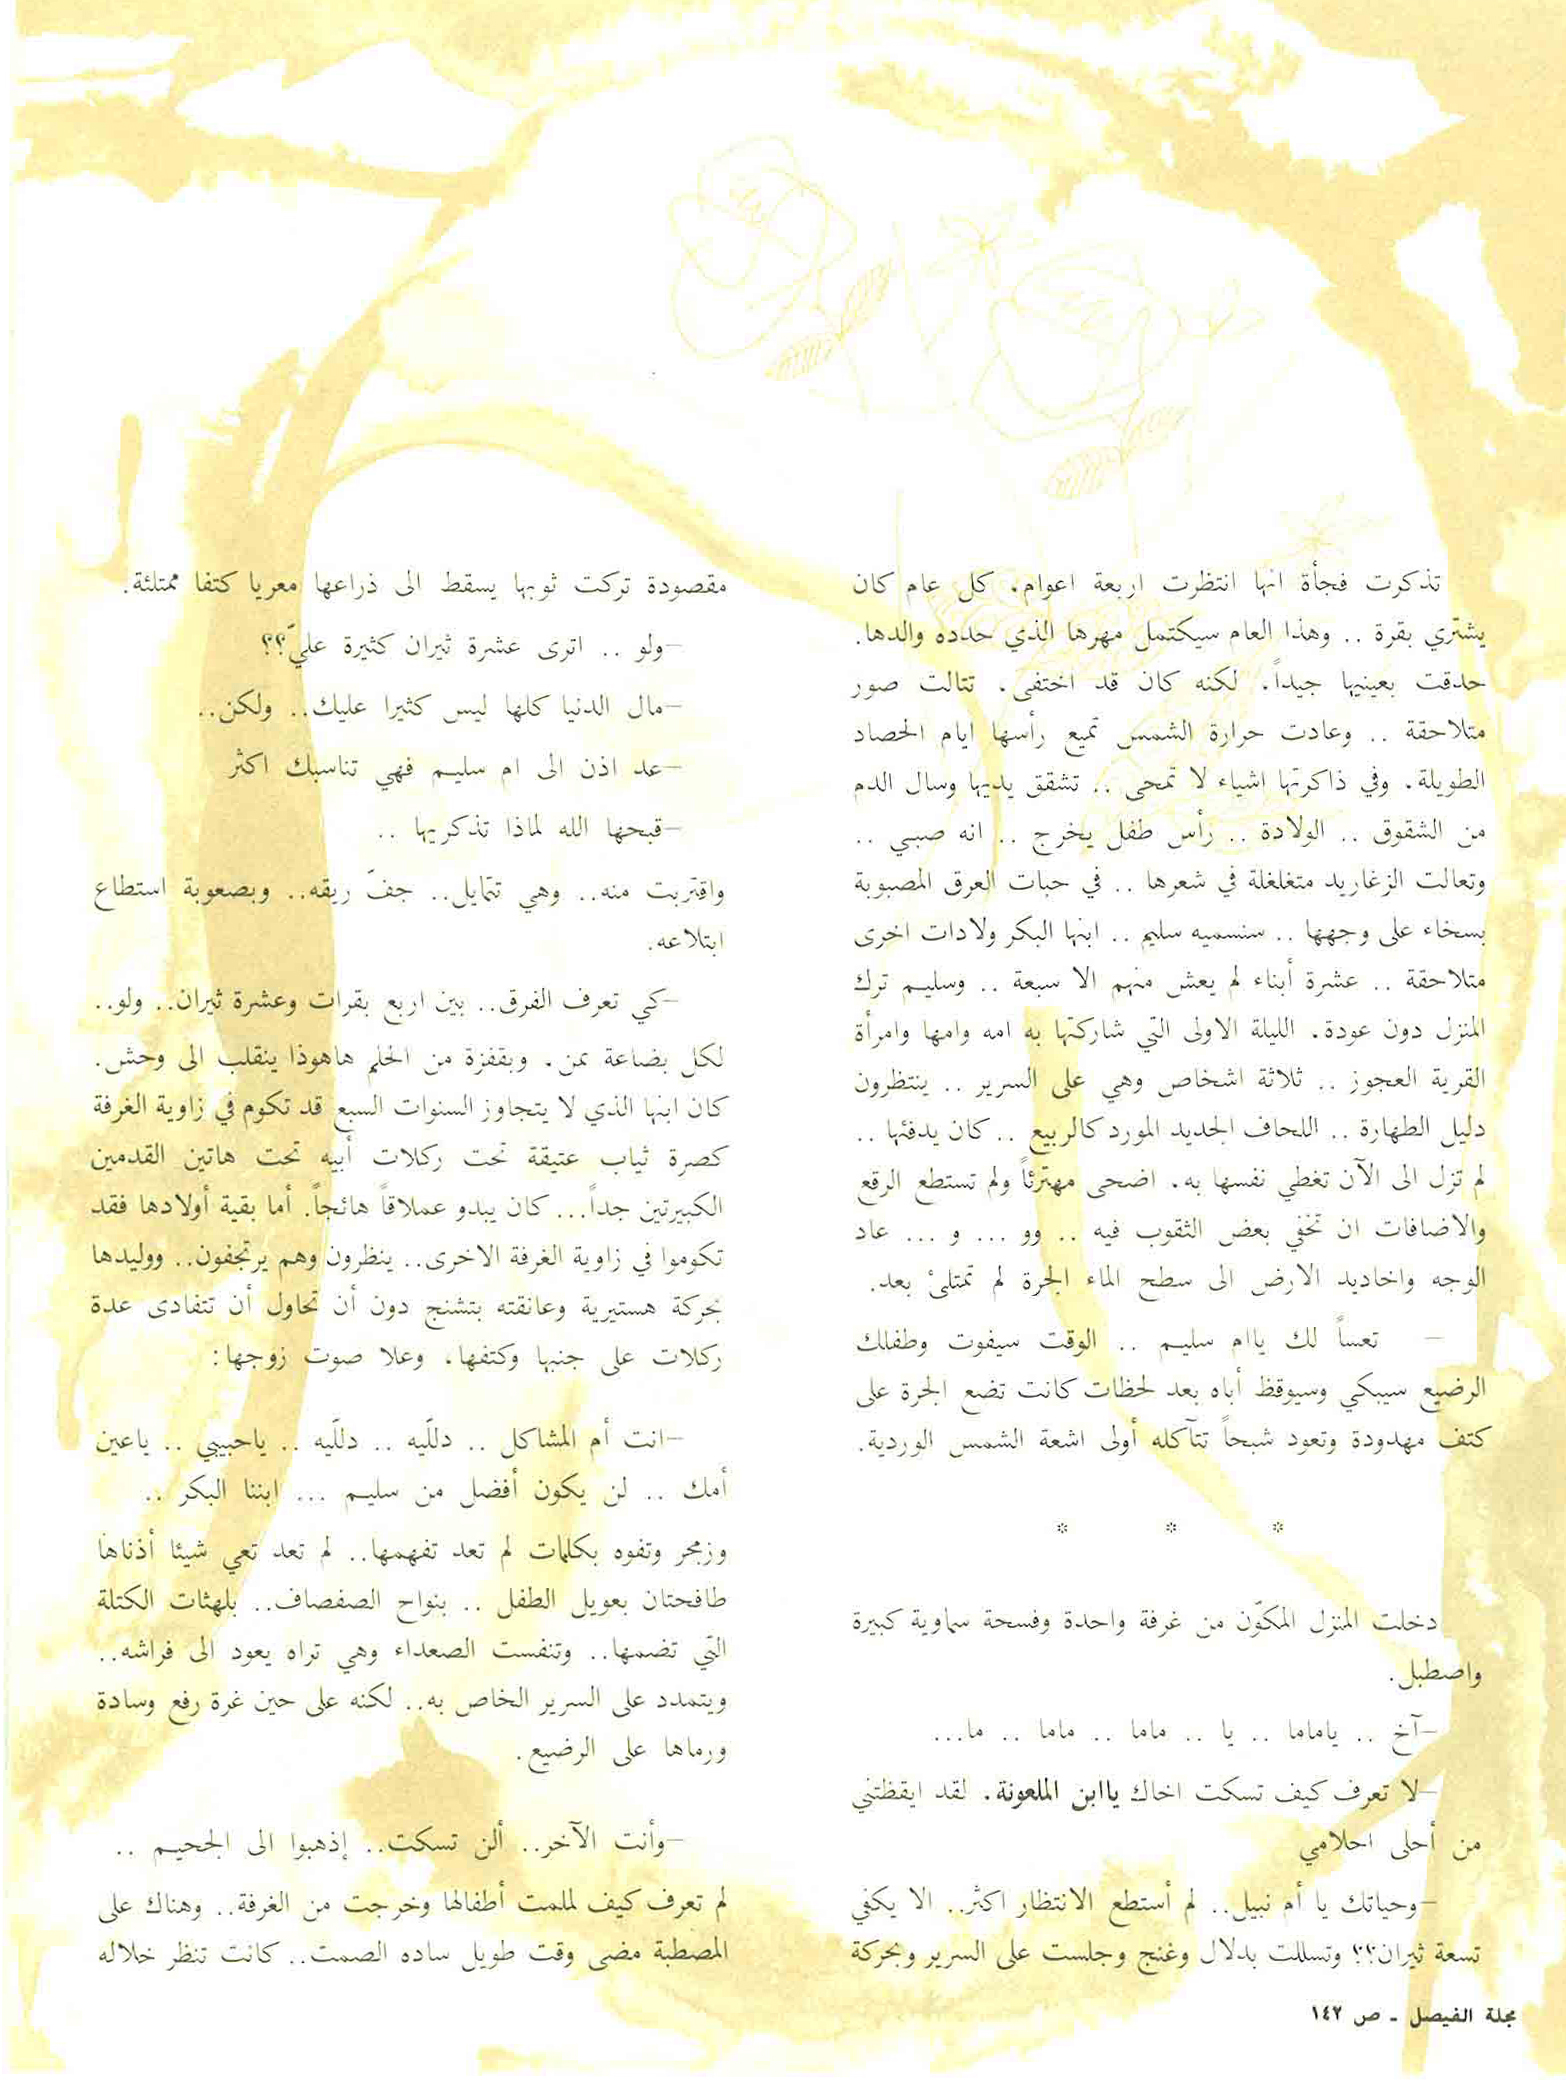 تذكرت فجأة انها انتظرت اربعة اعوام. كل عام كان
يشتري بقرة .. وهذا العام سيكتمل مهرها الذي حدده والدها.
حدقت بعينيها جيداً. لكنه كان قد اختفى. تتالت صور
متلاحقة .. وعادت حرارة الشمس تميع رأسها ايام الحصاد
الطويلة. وفي ذاكرتها اشياء لا تمحى .. تشقق يديها وسال الدم
من الشقوق .. الولادة .. رأس طفل يخرج .. انه صبي ..
وتعالت الزغاريد متغلغلة في شعرها .. في حبات العرق المصبوبة
بسخاء على وجهها .. سنسميه سليم .. ابنها البكر ولادات اخرى
متلاحقة .. عشرة أبناء لم يعش منهم الا سبعة .. وسليم ترك
المنزل دون عودة. الليلة الاولى التي شاركتها به امه وامها وامرأة
القرية العجوز .. ثلاثة اشخاص وهي على السرير .. ينتظرون
دليل الطهارة .. اللحاف الجديد المورد كالربيع .. كان يدفئها ..
لم تزل الى الآن تغطي نفسها به. اضحى مهترئاً ولم تستطع الرقع
والاضافات ان تخفي بعض الثقوب فيه .. وو ... و ... عاد
الوجه واخاديد الارض الى سطح الماء الجرة لم تمتلئ بعد.
— تعساً لك ياام سليم .. الوقت سيفوت وطفلك
الرضيع سيبكي وسيوقظ أباه بعد لحظات كانت تضع الجرة على
كتف مهدودة وتعود شبحاً تتآكله أولى اشعة الشمس الوردية.
* * *
دخلت المنزل المكوّن من غرفة واحدة وفسحة سماوية كبيرة
واصطبل.
—آخ .. ياماما .. يا .. ماما .. ماما .. ما...
—لا تعرف كيف تسكت اخاك ياابن الملعونة. لقد ايقظتني
من أحلى احلامي
—وحياتك يا أم نبيل.. لم أستطع الانتظار اكثر.. الا يكفي
تسعة ثيران؟؟ وتسللت بدلال وغنج وجلست على السرير وبحركة
مقصودة تركت ثوبها يسقط الى ذراعها معريا كتفا ممتلئة.
—ولو .. اترى عشرة ثيران كثيرة عليّ؟؟
—مال الدنيا كلها ليس كثيرا عليك.. ولكن..
—عد اذن الى ام سليم فهي تناسبك اكثر
—قبحها الله لماذا تذكريها ..
واقتربت منه.. وهي تتمايل.. جفّ ريقه.. وبصعوبة استطاع
ابتلاعه.
—كي تعرف الفرق.. بين اربع بقرات وعشرة ثيران.. ولو..
لكل بضاعة ثمن. وبقفزة من الحلم هاهوذا ينقلب الى وحش.
كان ابنها الذي لا يتجاوز السنوات السبع قد تكوم في زاوية الغرفة
كصرة ثياب عتيقة تحت ركلات أبيه تحت هاتين القدمين
الكبيرتين جداً... كان يبدو عملاقاً هائجاً. أما بقية أولادها فقد
تكوموا في زاوية الغرفة الاخرى.. ينظرون وهم يرتجفون.. ووليدها
بحركة هستيرية وعانقته بتشنج دون أن تحاول أن تتفادى عدة
ركلات على جنبها وكتفها. وعلا صوت زوجها:
—انت أم المشاكل .. دللّيه .. دللّيه .. ياحبيبي .. ياعين
أمك .. لن يكون أفضل من سليم ... ابننا البكر ..
وزمجر وتفوه بكلمات لم تعد تفهمها.. لم تعد تعي شيئا أذناها
طافحتان بعويل الطفل .. بنواح الصفصاف.. بلهثات الكتلة
التي تضمها.. وتنفست الصعداء وهي تراه يعود الى فراشه..
ويتمدد على السرير الخاص به.. لكنه على حين غرة رفع وسادة
ورماها على الرضيع.
—وأنت الآخر.. ألن تسكت.. إذهبوا الى الجحيم ..
لم تعرف كيف لملمت أطفالها وخرجت من الغرفة.. وهناك على
المصطبة مضى وقت طويل ساده الصمت.. كانت تنظر خلاله
مجلة الفيصل ـ ص ١٤٢